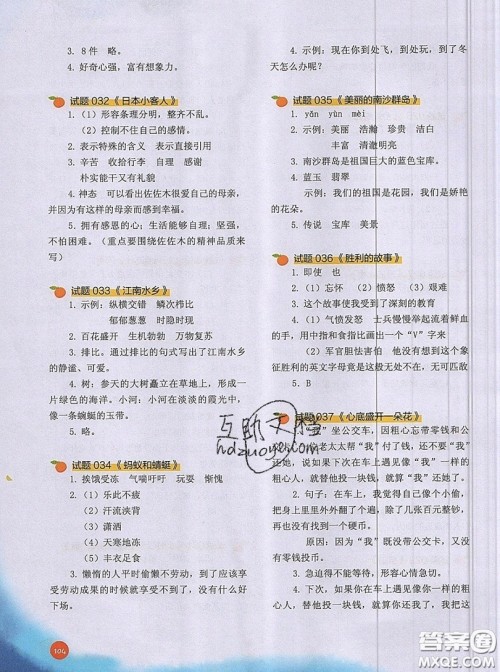 3. 8 件　略。
4. 好奇心强，富有想象力。
试题 032《日本小客人》
1.（1）形容条理分明，整齐不乱。
（2）控制不住自己的感情。
2. 表示特殊的含义　表示直接引用
3. 辛苦　收拾行李　自理　感谢
朴实能干又有礼貌
4. 神态　可以看出佐佐木很爱自己的母亲，
并因为有这样的母亲而感到幸福。
5. 拥有感恩的心；生活能够自理；坚强，
不怕困难。（重点要围绕佐佐木的精神品质来
写）
试题 033《江南水乡》
1. 示例：纵横交错　鳞次栉比
郁郁葱葱　时隐时现
2. 百花盛开　生机勃勃　万物复苏
3. 排比。通过排比的句式写出了江南水乡
的静谧、可爱。
4. 树：参天的大树矗立在草地上，形成一
片绿色的海洋。小河：小河在淡淡的霞光中，
像一条蜿蜒的玉带。
5. 略。
试题 034《蚂蚁和蜻蜓》
1. 挨饿受冻　气喘吁吁　玩耍　惭愧
2.（1）乐此不疲
（2）汗流浃背
（3）潇洒
（4）天寒地冻
（5）丰衣足食
3. 懒惰的人平时偷懒不劳动，到了应该享
受劳动成果的时候就享受不到，没有什么好
下场。
104
4. 示例：现在你到处飞，到处玩，到了冬
天怎么办呢？
试题 035《美丽的南沙群岛》
1. yǎn　yùn　mèi
2. 示例：美丽　浩瀚　珍贵　洁白
丰富　清澈明亮
3. 南沙群岛是祖国巨大的蓝色宝库。
4. 蓝玉　翡翠
示例：我们的祖国是花园，我们是娇艳
的花朵。
5. 传说　宝库　美景
试题 036《胜利的故事》
1. 即使　也
2.（1）忘怀　（2）愤怒　（3）艰难
3. 这个故事使我受到了深刻的教育
4.（1）气愤发怒　士兵慢慢举起流着鲜血
的手，用中指和食指比画出一个“V”字来
（2）军官胆怯害怕　他没想到这个象
征胜利的英文字母竟是这般无处不在，无可匹敌
5. B
试题 037《心底盛开一朵花》
坐公交车，因粗心忘带零钱却
老太太帮“我”付了钱，还不要“我”
还她，说如果下次在车上遇见像“我”一样粗
心的人，就替他投一块钱，就算“我”还她了。
2. 句子：在那么多人的车上，我像个小偷，
把身上里里外外翻了个遍，除了几张百元整钞，
再也没有找到一个硬币。
原因：因为“我”既没带公交卡，又没
有零钱投币。
3. 急迫得不能等待，形容心情急切。
4. 如果下次你在车上遇见像你一样的粗
心人，替他投一块钱，就算还了我，好吗？
互助文档
hdzuoye.com
答案圈
MXQE.COM